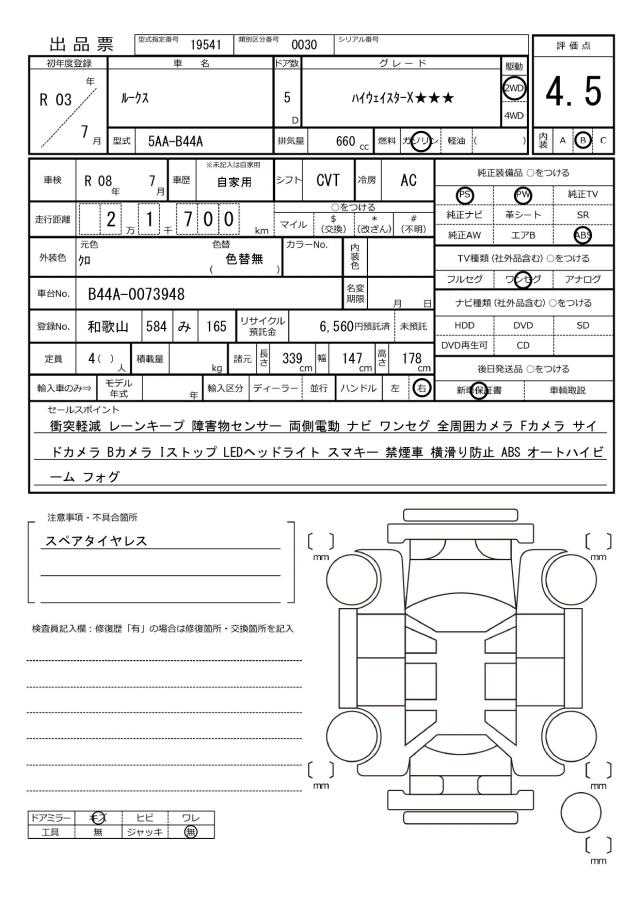 出品票 型式指定番号 19541 類別区分番号 0030 シリアル番号
評価点
4.5
内装 A B C
初年度登録 車名 ドア数 グレード 駆動
R 03 年 7 月 ルークス 5 D ハイウェイスターX★★★ 2WD 4WD
型式 5AA-B44A 排気量 660 cc 燃料 ガソリン 軽油 ( )
車検 R 08 年 7 月 車歴 ※未記入は自家用 自家用 シフト CVT 冷房 AC
走行距離 2 万 1 千 7 0 0 km ○をつける
マイル $(交換) *(改ざん) #(不明)
外装色 元色 クロ 色替 ( 色替無 ) カラーNo. 内装色
車台No. B44A-0073948 名変期限 月 日
登録No. 和歌山 584 み 165 リサイクル預託金 6,560円預託済 未預託
定員 4( )人 積載量 kg 諸元 長さ 339cm 幅 147cm 高さ 178cm
輸入車のみ⇒ モデル年式 年 輸入区分 ディーラー 並行 ハンドル 左 右
純正装備品 ○をつける
PS PW 純正TV
純正ナビ 革シート SR
純正AW エアB ABS
TV種類(社外品含む)○をつける
フルセグ ワンセグ アナログ
ナビ種類(社外品含む)○をつける
HDD DVD SD
DVD再生可 CD
後日発送品 ○をつける
新車保証書 車輌取説
セールスポイント
衝突軽減 レーンキープ 障害物センサー 両側電動 ナビ ワンセグ 全周囲カメラ Fカメラ サイ
ドカメラ Bカメラ Iストップ LEDヘッドライト スマキー 禁煙車 横滑り防止 ABS オートハイビ
ーム フォグ
注意事項・不具合箇所
スペアタイヤレス
検査員記入欄：修復歴「有」の場合は修復箇所・交換箇所を記入
〔 〕mm 〔 〕mm
〔 〕mm 〔 〕mm
〔 〕mm
ドアミラー キズ ヒビ ワレ
工具 無 ジャッキ 無